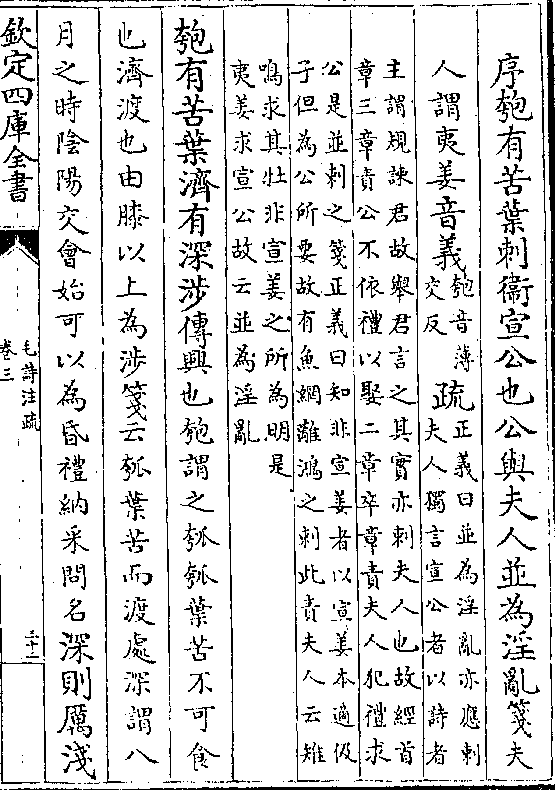 序匏有苦葉刺衞宣公也公與夫人並為淫亂箋夫
人謂夷姜音義匏音薄
交反疏正義曰並為淫亂亦應刺
夫人獨言宣公者以詩者
主謂規諫君故舉君言之其實亦刺夫人也故經首
章三章責公不依禮以娶二章卒章責夫人犯禮求
公是並刺之箋正義曰知非宣姜者以宣姜本適伋
子但為公所要故有魚網離鴻之刺此責夫人云雉
鳴求其牡非宣姜之所為明是
夷姜求宣公故云並為淫亂
匏有苦葉濟有深涉傳興也匏謂之瓠瓠葉苦不可食
也濟渡也由膝以上為涉箋云瓠葉苦而渡處深謂八
月之時陰陽交會始可以為昏禮納采問名深則厲淺
欽定四庫全書
毛詩注疏
卷三
三十二